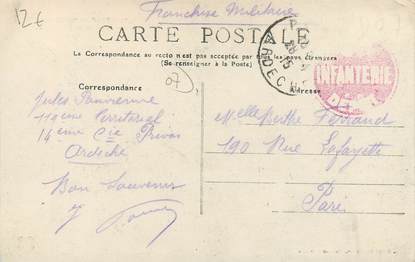 12€
Franchise Militaire
CARTE POSTALE
La Correspondance au recto n'est pas acceptée par tous les pays étrangers
(Se renseigner à la Poste)
Correspondance
Adresse
07
ARDECHE
INFANTERIE
Jules
14ème Cie Privas
Ardèche
Bon Souvenir
Melle Berthe Ferrand
190 Rue Lafayette
Paris